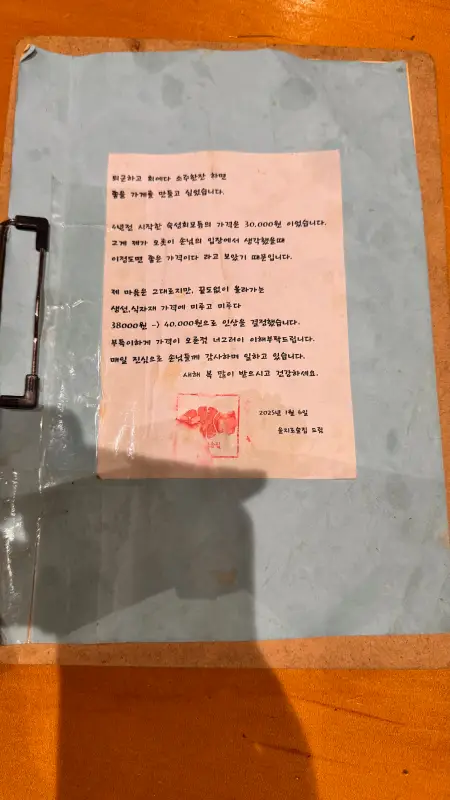 퇴근하고 회에다 소주한잔 하면
좋을 가게를 만들고 싶었습니다.
4년전 시작한 숙성회모듬의 가격은 30,000원 이었습니다.
그게 제가 오롯이 손님의 입장에서 생각했을때
이정도면 좋은 가격이다 라고 보았기 때문입니다.
제 마음은 그대로지만, 끝도없이 올라가는
생선,식자재 가격에 미루고 미루다
38000원 -> 40,000원으로 인상을 결정했습니다.
부득이하게 가격이 오른점 너그러이 이해부탁드립니다.
매일 진심으로 손님들께 감사하며 일하고 있습니다.
새해 복 많이 받으시고 건강하세요.
2025년 1월 6일
윤지로술집 드림